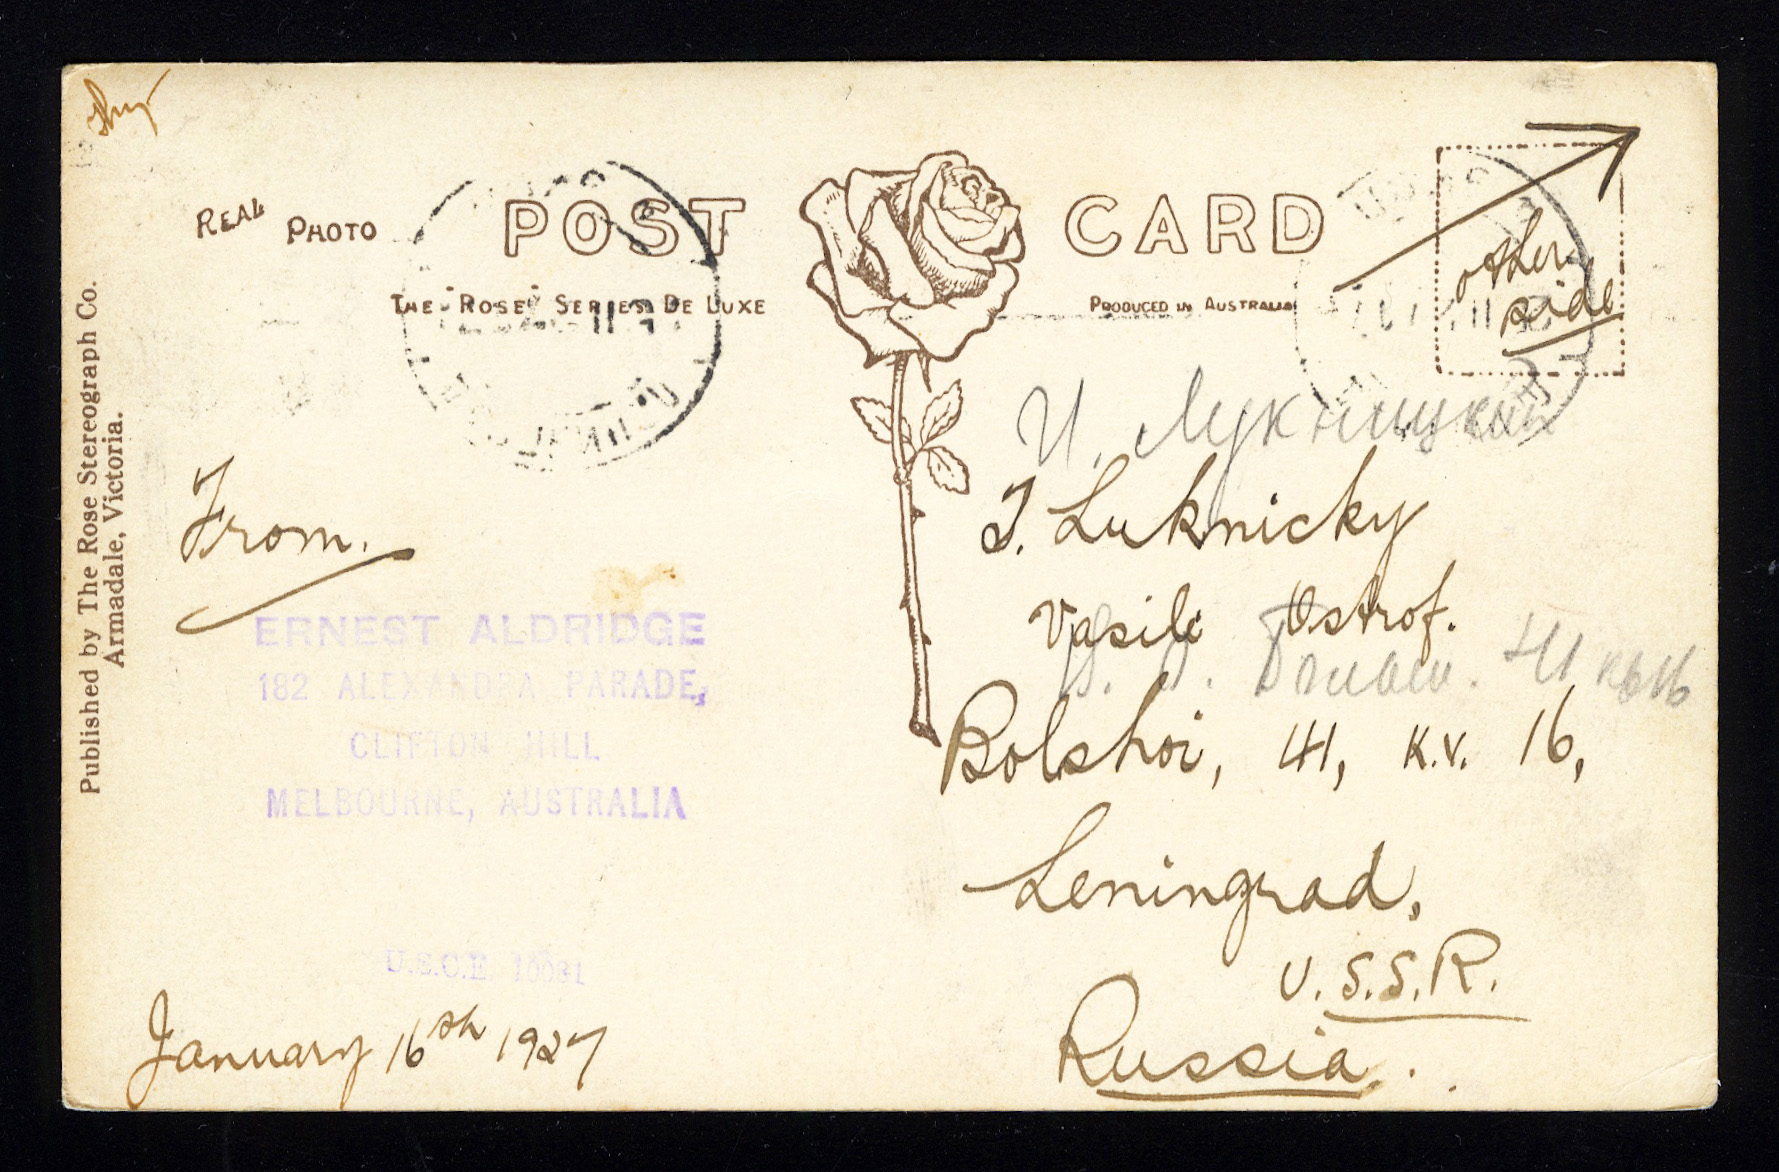 REAL PHOTO
POST CARD
THE "ROSE" SERIES DE LUXE
PRODUCED IN AUSTRALIA
other
side
Published by The Rose Stereograph Co.
Armadale, Victoria.
From.
ERNEST ALDRIDGE
182 ALEXANDRA PARADE,
CLIFTON HILL
MELBOURNE, AUSTRALIA
U.S.C.E 10081
January 16th 1927
И. Лукницкий
I. Luknicky
Vasili Ostrof.
В. О. 41 кв 16
Bolshoi, 41, K.V. 16,
Leningrad,
U.S.S.R.
Russia.